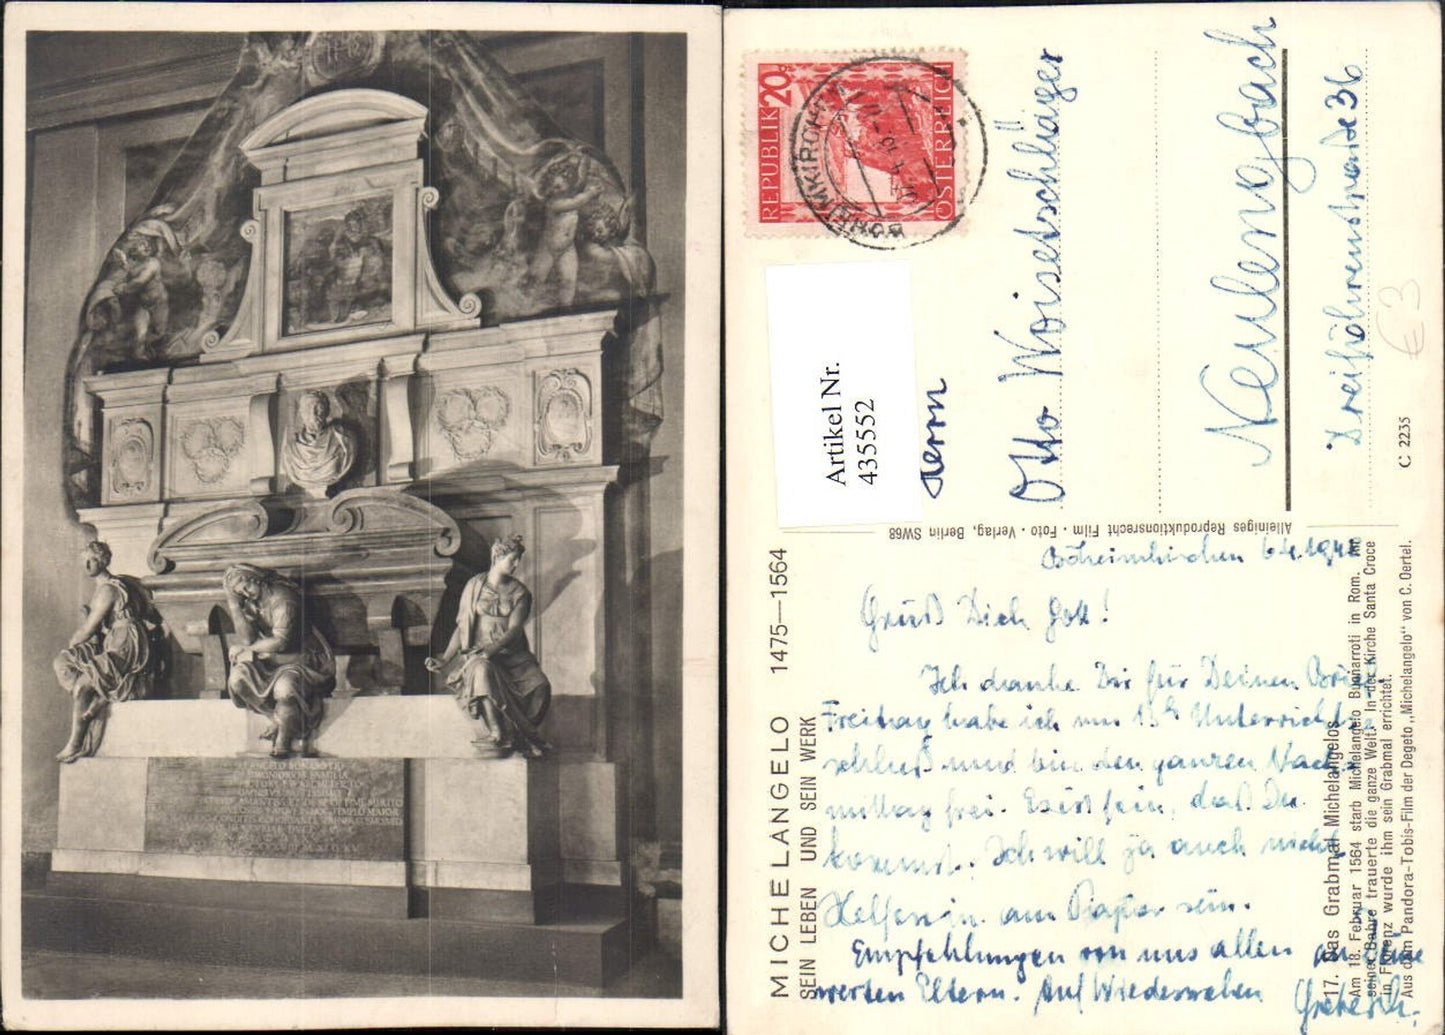 REPUBLIK 20g
ÖSTERREICH
BÖHEIMKIRCHEN
Artikel Nr.
435552
Herrn
Otto Woisetschläger
Neulengbach
Dreiföhrenstraße 36
€ 3
C 2235
Alleiniges Reproduktionsrecht Film-Foto-Verlag, Berlin SW68
MICHELANGELO 1475—1564
SEIN LEBEN UND SEIN WERK
17. Das Grabmal Michelangelos
Am 18. Februar 1564 starb Michelangelo Buonarroti in Rom. Mit
seiner Bahre trauerte die ganze Welt. In der Kirche Santa Croce
in Florenz wurde ihm sein Grabmal errichtet.
Aus dem Pandora-Tobis-Film der Degeto „Michelangelo" von C. Oertel.
Böheimkirchen
Grüß Dich Gott!
Ich danke Dir für Deinen Brief
Freitag habe ich um 13h Unterrichts
schluß und bin den ganzen Nach
mittag frei. Es ist fein, daß Du
kommst. Ich will ja auch nicht
Helferin am Papier sein.
Empfehlungen von uns allen an Deine
werten Eltern. Auf Wiedersehen